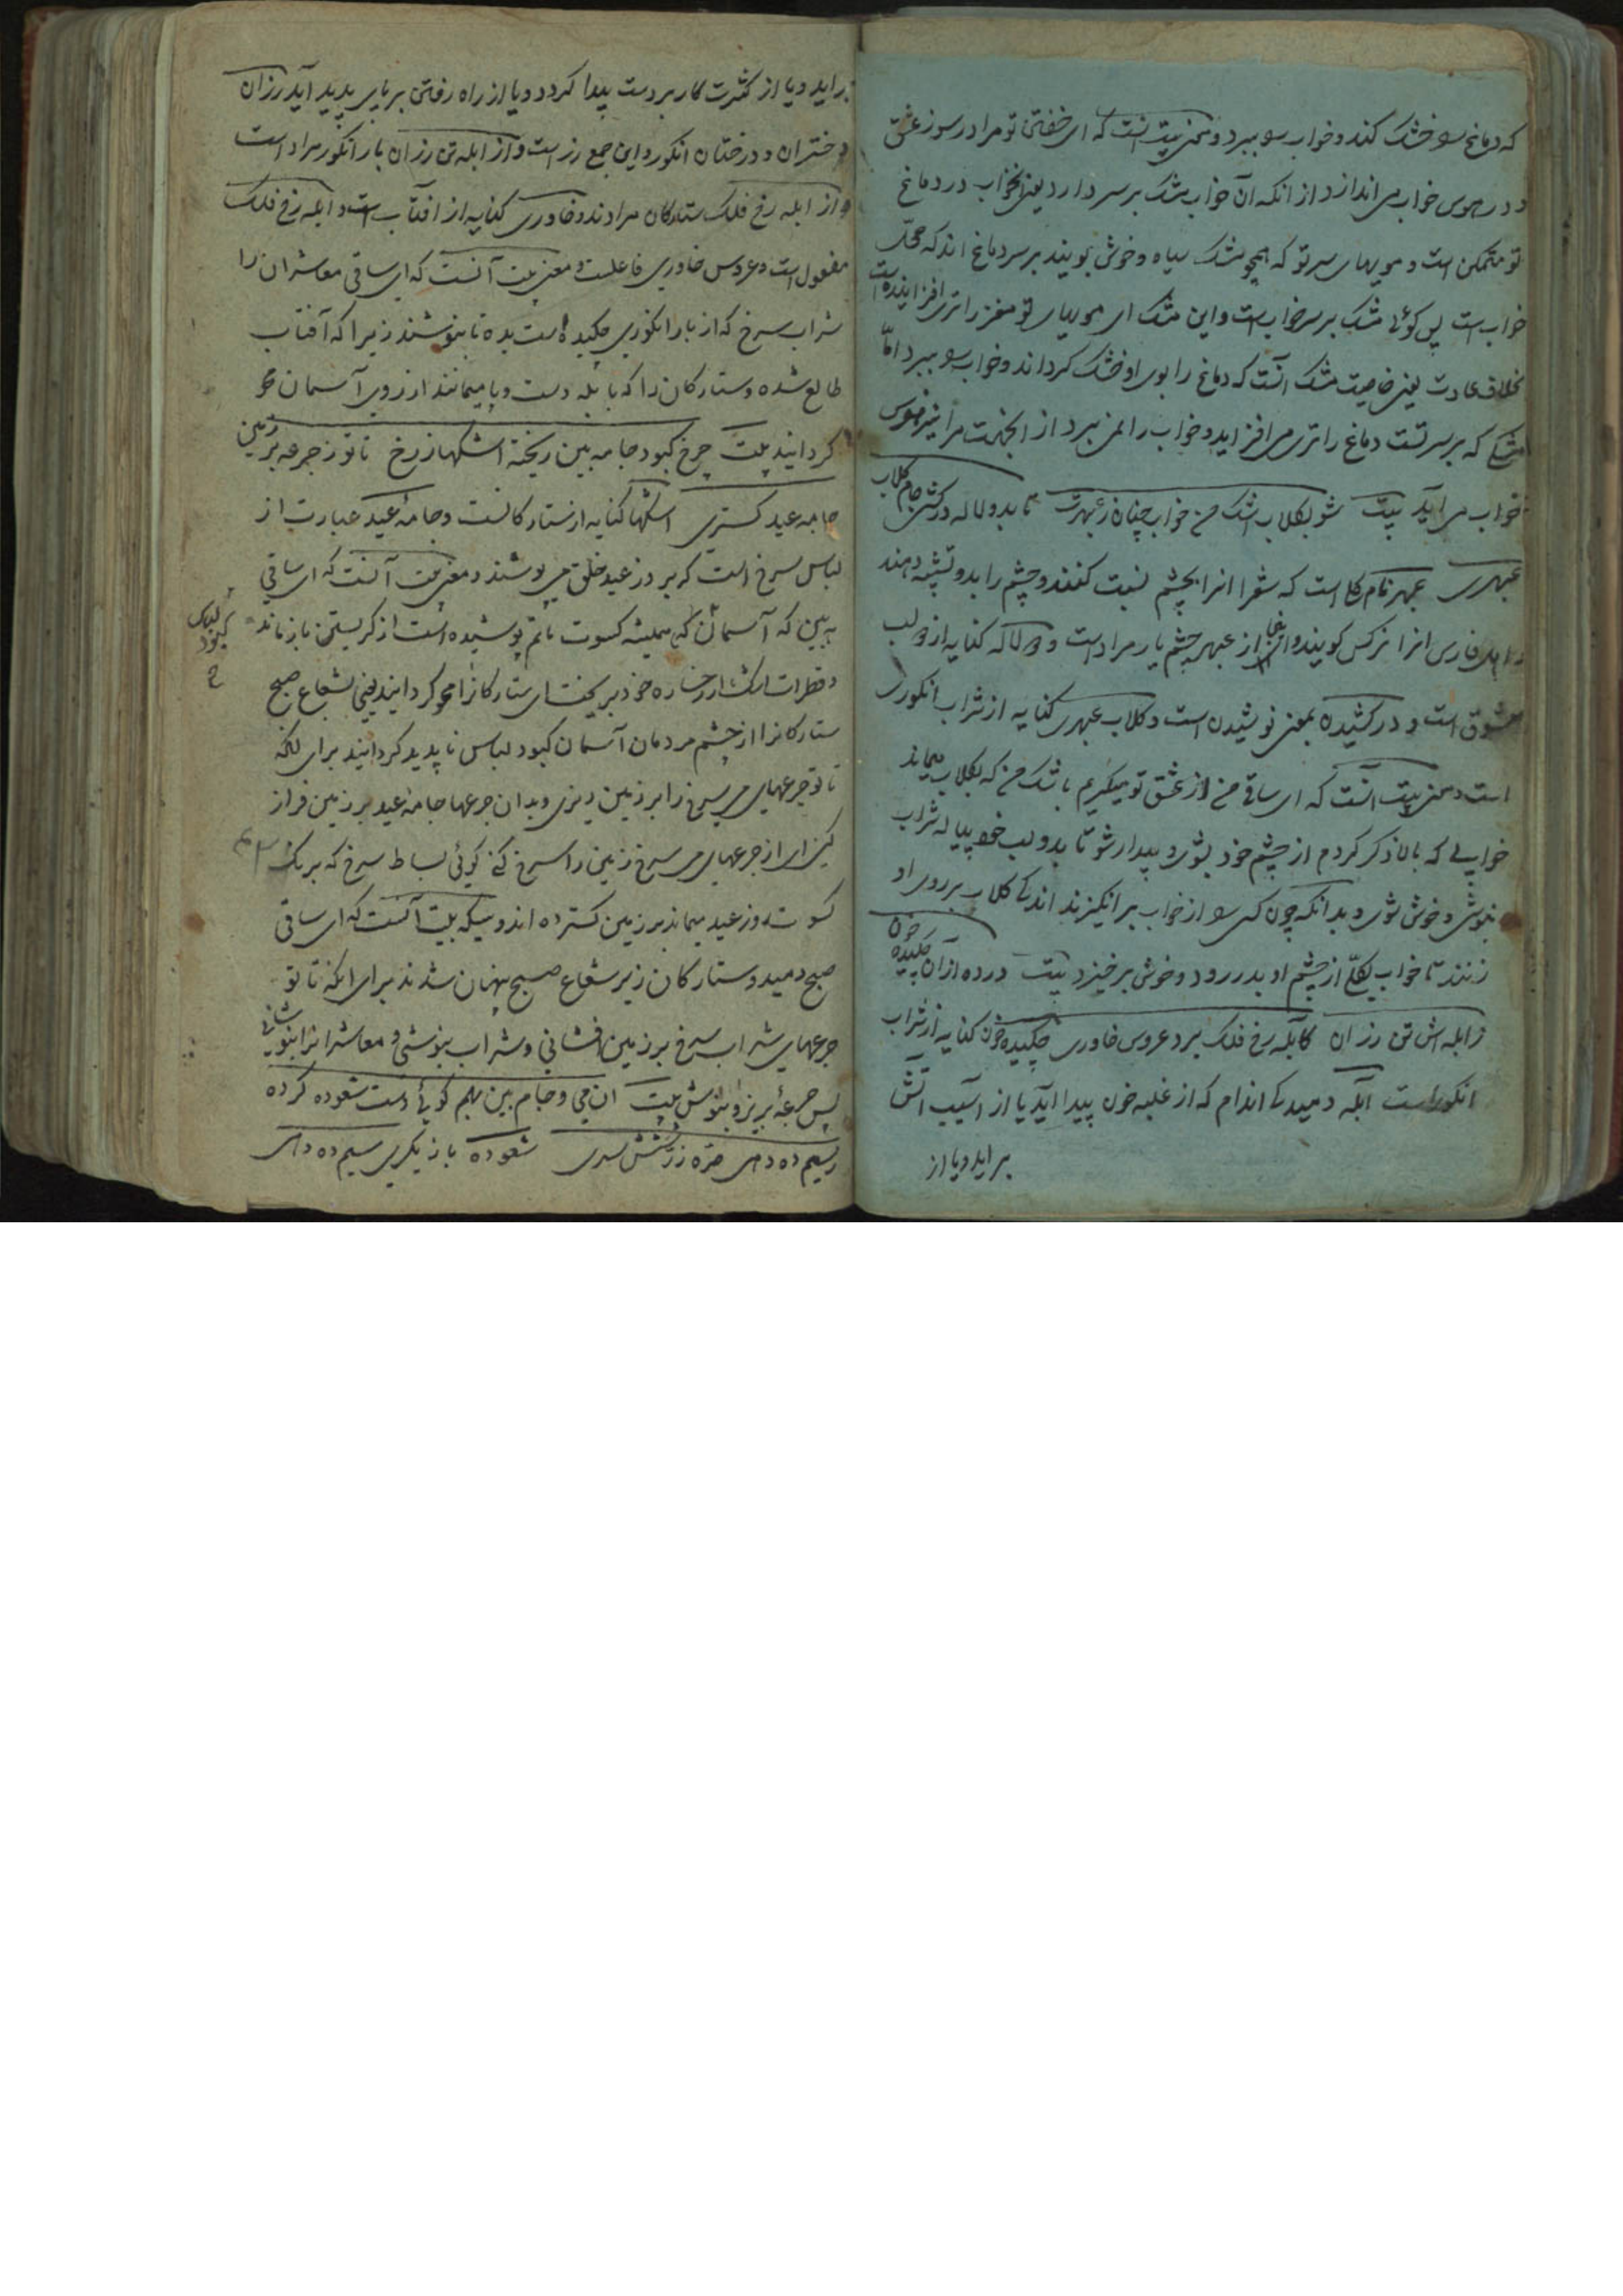 که دماغ را خشک کند و خواب را ببرد و معنی بیت آنست که ای خفتن تو مرا در سوز عشق
و در هوس خواب می اندازد از انکه آن خواب مشک بر سر دارد یعنی خواب در دماغ
تو متمکن است و مویهای سر تو که همچو مشک سیاه و خوش بویند بر سر دماغ اند که محل
خواب است پس کوئی مشک بر سر خواب است و این مشک ای مویهای تو مغز را تری افزاینده است
بخلاف عادت یعنی خاصیت مشک آنست که دماغ را بوی او خشک کرداند و خواب را ببرد اما
مشکی که بر سر تست دماغ را تری می افزاید و خواب را نمی برد از انجهت مرا نیز هوس
خواب می آید بیت شو بکلاب اشک من خواب چنان ز عبهرت تا بدو لاله درکشی جام کلاب
عبهری عبهر نام کل است که شعرا انرا بچشم نسبت کنند و چشم را بدو تشبیه دهند
و اهل فارس انرا نرکس کویند و اینجا از عبهر چشم یار مراد است و دو لاله کنایه از دو لب
معشوق است و درکشیدن بمعنی نوشیدن است و کلاب عبهری کنایه از شراب انکوری
است و معنی بیت آنست که ای ساقی من از عشق تو میکریم باشک من که بکلاب میماند
خوابی که بالا ذکر کردم از چشم خود بشوی و بیدار شو تا بدو لب خود پیاله شراب
بنوشی و خوش شوی و بدانکه چون کسی را از خواب بر انکیزند اندکی کلاب بر روی او
زنند تا خواب بکلی از چشم او بدر رود و خوش برخیزد بیت درده از آن چکیده خون
ز ابله اش تن رزان کابله رخ فلک برد عروس خاوری چکیده خون کنایه از شراب
انکور است آبله دمیدکی اندام که از غلبه خون پیدا آید یا از آسیب آتش
بر اید و یا از
بر اید و یا از کثرت کار بر دست پیدا کردد و یا از راه رفتن بر پای پدید آید رزان
دختران و درختان انکور و این جمع رز است و از ابله تن رزان بار انکور مراد است
و از ابله رخ فلک ستارکان مرادند و خاوری کنایه از افتاب است و ابله رخ فلک
مفعول است و عروس خاوری فاعلست و معنی بیت آنست که ای ساقی معاشران را
شراب سرخ که از بار انکوری چکیده است بده تا بنوشند زیرا که آفتاب
طالع شده و ستارکان را که بابله دست و پا میمانند از روی آسمان محو
کردانید بیت چرخ کبود جامه بین ریخته اشکها ز رخ تا تو ز جرعه بر زمین
جامه عید کستری اشکها کنایه از ستارکانست و جامه عید عبارت از
لباس سرخ است که بروز عید خلق می پوشند و معنی بیت آنست که ای ساقی
به بین که آسمان که همیشه کسوت ماتم پوشیده است از کریستن باز ماند
لباس کبود
و قطرات اشک از رخساره خود بریخت ای ستارکانرا محو کردانید یعنی بشعاع صبح
ستارکانرا از چشم مردمان آسمان کبود لباس ناپدید کردانید برای انکه
تا تو جرعهای می سرخ را بر زمین ریزی و بدان جرعها جامه عید بر زمین فراز
کنی ای از جرعهای می سرخ زمین را سرخ کنی کوئی بساط سرخ که برنک
کسوت روز عید میماند بر زمین کسترده اند و سیکه بیت آنست که ای ساقی
صبح دمید و ستارکان زیر شعاع صبح پنهان شدند برای انکه تا تو
جرعهای شراب سرخ بر زمین افشانی و شراب بنوشی و معاشرانرا بنوشانی
پس جرعه بریز و بنوش بیت ان می و جام بین بهم کوئی دست شعوده کرده
ز سیم ده دهی صره زر شش سری شعوده بازیکری سیم ده دهی